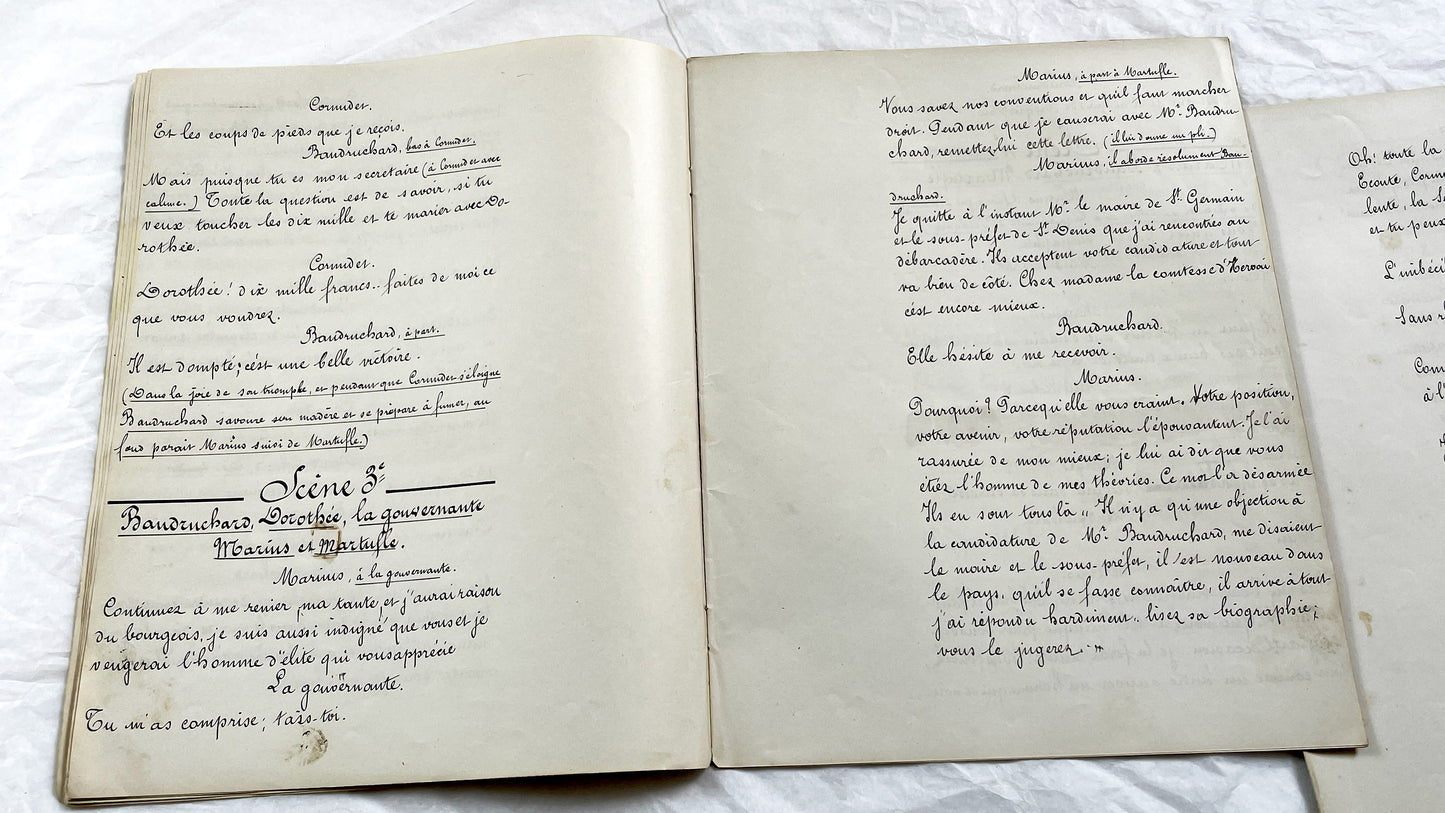 Cornudet.
Et les coups de pieds que je reçois.
Baudruchard, bas à Cornudet.
Mais puisque tu es mon secretaire (à Cornudet avec
calme.) Toute la question est de savoir, si tu
veux toucher les dix mille et te marier avec Do-
rothée.
Cornudet.
Dorothée! dix mille francs.. faites de moi ce
que vous voudrez.
Baudruchard, à part.
Il est dompté; c'est une belle victoire.
(Dans la joie de son triomphe, et pendant que Cornudet s'éloigne
Baudruchard savoure son madère et se prépare à fumer, au
fond parait Marius suivi de Martufle.)
Scène 3e
Baudruchard, Dorothée, la gouvernante
Marius et Martufle.
Marius, à la gouvernante.
Continuez à me renier, ma tante, et j'aurai raison
du bourgeois, je suis aussi indigné que vous et je
vengerai l'homme d'élite qui vous apprécie
La gouvernante.
Tu m'as comprise; tais-toi.
Marius, à part à Martufle.
Vous savez nos conventions et qu'il faut marcher
droit. Pendant que je causerai avec Mr. Baudru-
chard, remettez-lui cette lettre. (il lui donne un pli.)
Marius, il aborde résolument Bau-
druchard.
Je quitte à l'instant Mr. le maire de St. Germain
et le sous-préfet de St Denis que j'ai rencontrés au
débarcadère. Ils acceptent votre candidature et tout
va bien de côté. Chez madame la comtesse d'Hervai
c'ést encore mieux.
Baudruchard.
Elle hésite à me recevoir.
Marius.
Pourquoi? Parcequ'elle vous craint. Votre position,
votre avenir, votre réputation l'épouvantent. Je l'ai
rassurée de mon mieux; je lui ai dit que vous
étiez l'homme de mes théories. Ce mot l'a désarmée
Ils en sont tous là „ Il n'y a qu'une objection à
la candidature de Mr. Baudruchard, me disaient
le maire et le sous-préfet, il est nouveau dans
le pays, qu'il se fasse connaître, il arrive à tout
j'ai répondu hardiment.. lisez sa biographie;
vous le jugerez.
Oh! toute la
Ecoute, Corn
lente, la S
et tu peux
L'imbéci
Sans r
Com
à l'